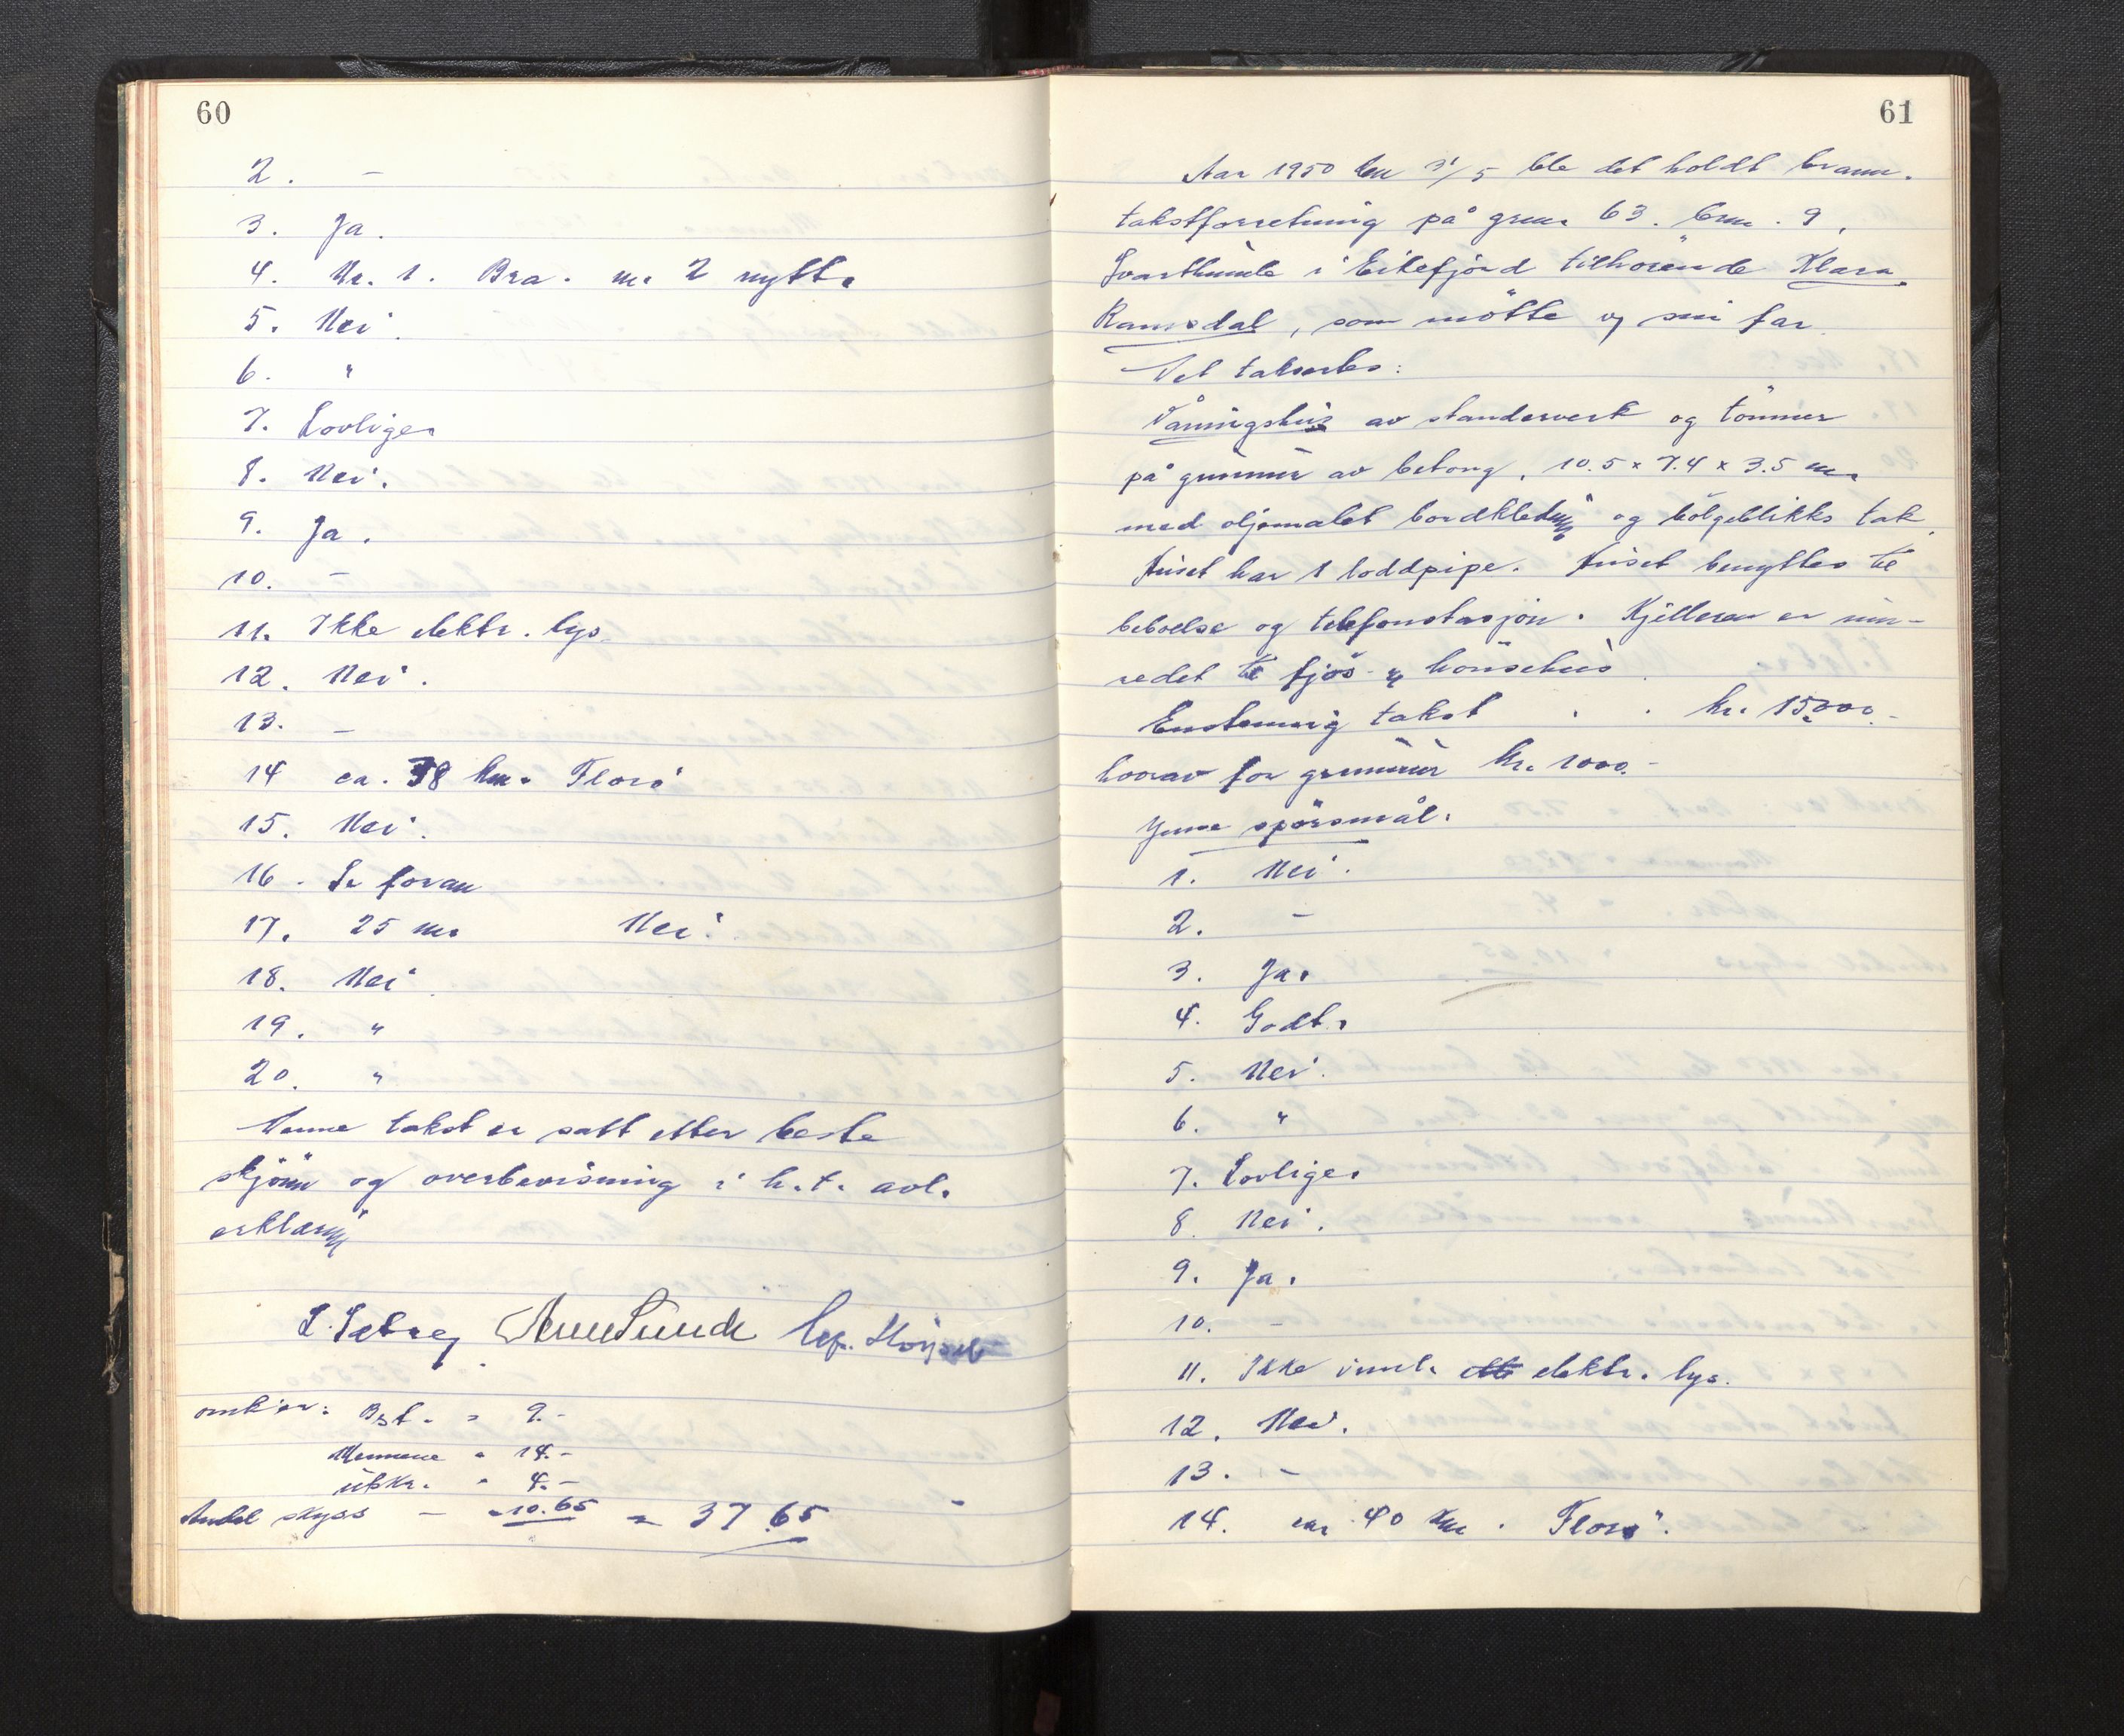 60
2. -
3. Ja.
4. Nr. 1. Bra. nr 2 nytt.
5. Nei.
6. "
7. Lovlige.
8. Nei.
9. Ja.
10. -
11. Ikke elektr. lys.
12. Nei.
13. -
14 ca. 38 km. Florö
15. Nei.
16. Se foran
17. 25 m. Nei.
18. Nei
19. "
20. "
Denne takst er satt etter beste
skjönn og overbevisning i h.t. avl.
erklæring
S. Sæbrey Arne Sunde
omk.er: Bst. = 9.-
Mennene " 14.-
utskr. " 4.-
Andel skyss - " 10.65 = 37.65
61
Aar 1950 den 31/5 ble det holdt brann-
takstforretning på grnr. 63. brnr. 9,
Svarthumle i Eikefjord tilhörende Klara
Ramsdal, som mötte og sin far.
Det takseres:
Våningshus av standerverk og tömmer
på grunnmur av betong, 10.5 x 7.4 x 3.5 m.
med oljemalet bordkledning og bölgeblikks tak.
Huset har 1 loddpipe. Huset benyttes til
beboelse og telefonstasjon. Kjelleren er inn-
redet til fjös og hönsehus.
Enstemmig takst . . kr. 15.000.-
hvorav for grunnmur kr. 1000.-
Gjenne spörsmål.
1. Nei.
2. -
3. Ja.
4. Godt.
5. Nei.
6. "
7. Lovlige.
8 Nei.
9. Ja.
10. -
11. Ikke innl. elektr. lys.
12. Nei.
13. -
14. ca. 40 km. Florö.